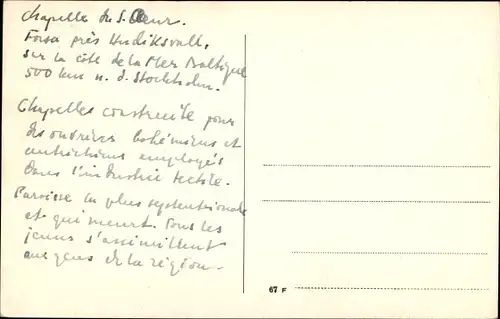 Chapelle du S. Cœur.
Forsa près Hudiksvall,
sur la côte de la Mer Baltique
500 km n. d. Stockholm.
Chapelles construite pour
des ouvriers bohémiens et
autrichiens employés
dans l'industrie textile.
Paroisse la plus septentrionale
et qui meurt. Tous les
jeunes s'assimillent
aux gens de la région.
67 F